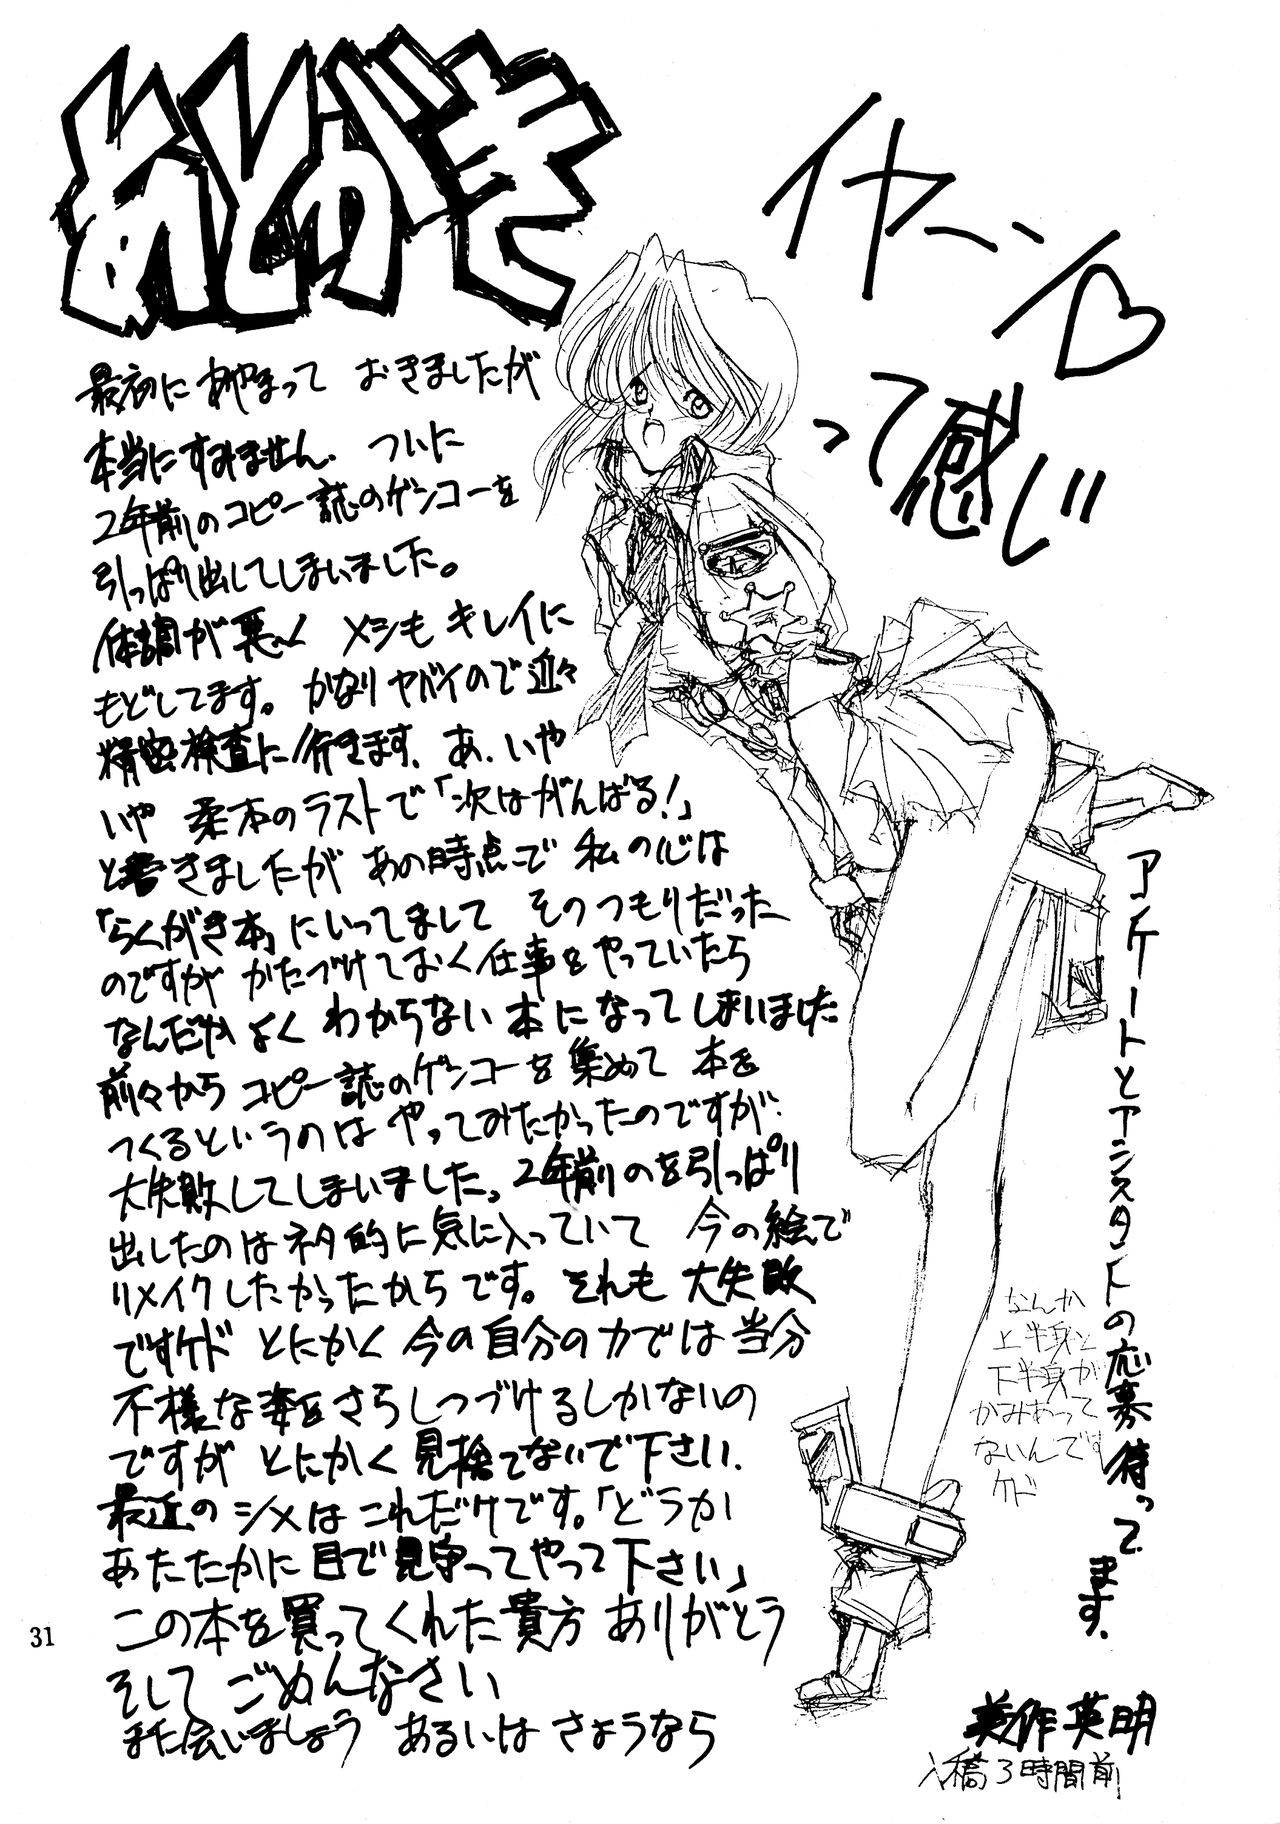 あとがき
イヤーン♡
って感じ
最初にあやまって おきましたが
本当にすみません. ついに
2年前のコピー誌のゲンコーを
引っぱり出してしまいました。
体調が悪く メシもキレイに
もどしてます。かなりヤバイので近々
精密検査に行きます. あ、いや
いや 柔本のラストで「次はがんばる!」
と書きましたが あの時点で 私の心は
「らくがき本」にいってまして そのつもりだった
のですが かたづけておく仕事をやっていたら
なんだかよく わからない本になってしまいました
前々からコピー誌のゲンコーを集めて 本を
つくるというのは やってみたかったのですが.
大失敗してしまいました。2年前のを引っぱり
出したのはネタ的に気に入っていて 今の絵で
リメイクしたかったからです。それも 大失敗
ですけド とにかく今の自分の力では当分
不様な姿をさらしつづけるしかないの
ですが とにかく見捨てないで下さい.
最近のシメはこれだけです。「どうか
あたたかに目で見守ってやって下さい」
この本を買ってくれた貴方 ありがとう
そして ごめんなさい
また会いましょう あるいは さようなら
アンケートとアシスタントの応募待ってます.
なんか
上半身と
下半身が
かみあって
ないんです
ケド
美作英明
入稿3時間前
31